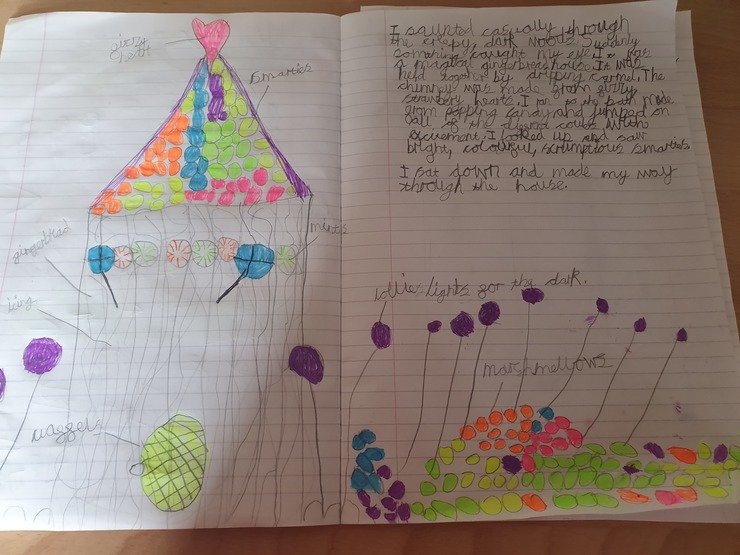 smarties
gingerbread
mints
icing
I saunted casually through
the creepy, dark woods. Suddenly
something caught my eye. It was
a magical gingerbread house. It was
held together by dripping carmel. The
chimney was made from fizzy
strawbery hearts. I ran to the path made
from popping candy and jumped on
all of the different coulers with
excitement. I looked up and saw
bright, colourful, scrumptious smarties
I sat down and made my way
through the house.
lollies lights for the dark.
marshmellows